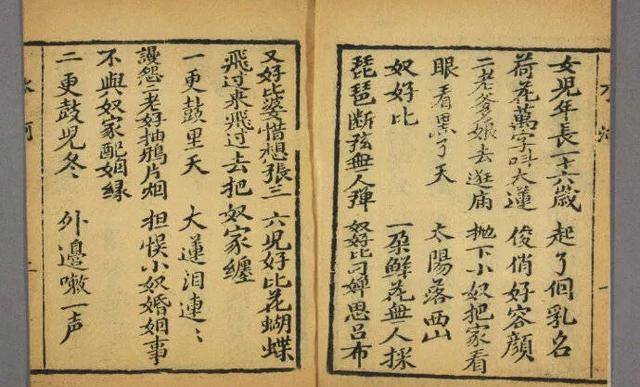 女兒年長一十六歳　起了個乳名
荷花萬字叫大蓮　俊俏好容顔
二老爹娘去逛庙　抛下小奴把家看
眼看黑了天　太陽落西山
奴好比　一朶鮮花無人採
琵琶断弦無人彈　奴好比刁嬋思吕布
又好比婆惜想張三　六兒好比花蝴蝶
飛过来飛过去把奴家纏
一更鼓里天　大蓮泪連〻
謾怨二老好抽鴉片烟　担悮小奴婚姻事
不與奴家配姻縁
二更鼓児冬　外邊嗽一声